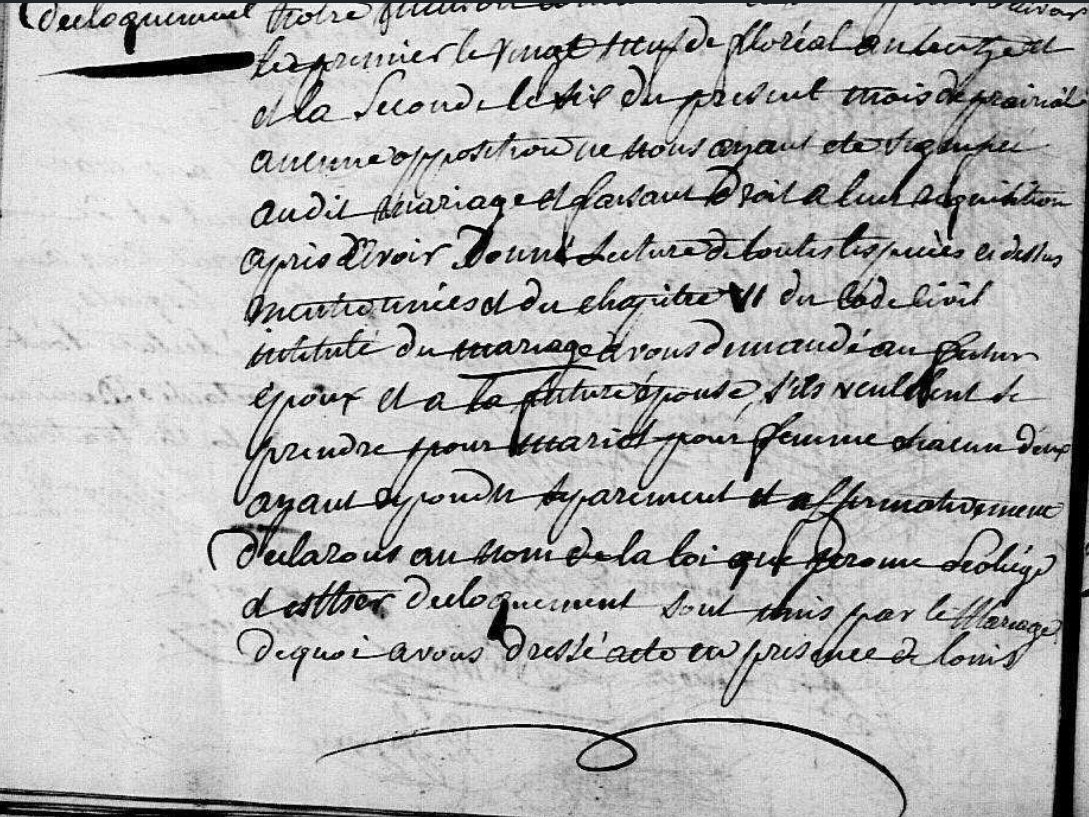 decloquement notre
la premier le vingt neuf de floréal an treize et
et la Seconde le six du present mois de prairial
aucune opposition ne nous ayant ete signifiée
audit mariage et faisant Droit a leur requisition
apris d'avoir Donné Lecture de toutes les pieces ci dessus
mentionnées et du chapitre VI du Code Civil
intitulé du mariage avons demandé au futur
époux et a la future épouse, s'ils veullent se
prendre pour mari et pour femme chacun d'eux
ayant repondu separement et affirmativement
declarons au nom de la loi que Jerome
et esther decloquement sont unis par le Mariage
de quoi avons dressé acte en presence de louis